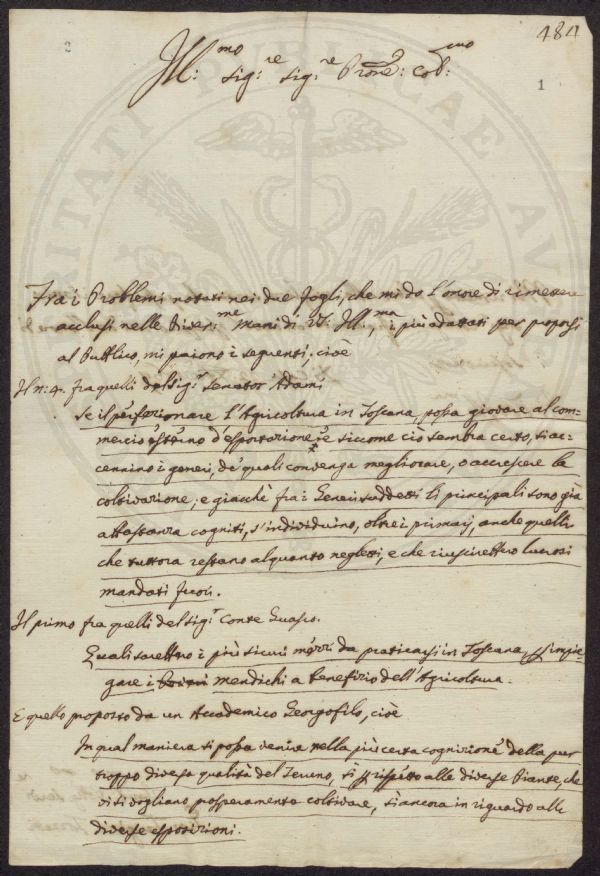 484
2
1
Ill:mo Sig:re Sig:re Prone: Col:mo
Fra i Problemi notati nei due fogli, che mi do l'onore di rimettere
acclusi nelle River:me Mani di V: Ill:ma, i più adattati per proporsi
al Pubblico, mi paiono i seguenti, cioè
Il n: 4. fra quelli del Sig:r Senator Adami
Se il perfezionare l'Agricoltura in Toscana, possa giovare al com-
mercio esterno d'esportazione; e siccome ciò sembra certo, si ac-
cennino i generi, de' quali convenga megliorare, o accrescere la
coltivazione, e giacchè fra i Generi suddetti li principali sono già
abbastanza cogniti, s'individuino, oltre i primarj, anche quelli
che tuttora restano alquanto negletti, e che riuscirebbero lucrosi
mandati fuori.
Il primo fra quelli del Sig:r Conte Guasco.
Quali sarebbero i più sicuri mezzi da praticarsi in Toscana, p impie-
gare i mendichi a benefizio dell'Agricoltura.
E quello proposto da un Accademico Georgofilo, cioè
In qual maniera si possa venire nella più certa cognizione della pur
troppo diversa qualità del Terreno, sì rispetto alle diverse Piante, che
vi si vogliano prosperamente coltivare, sì ancora in riguardo alle
diverse esposizioni.